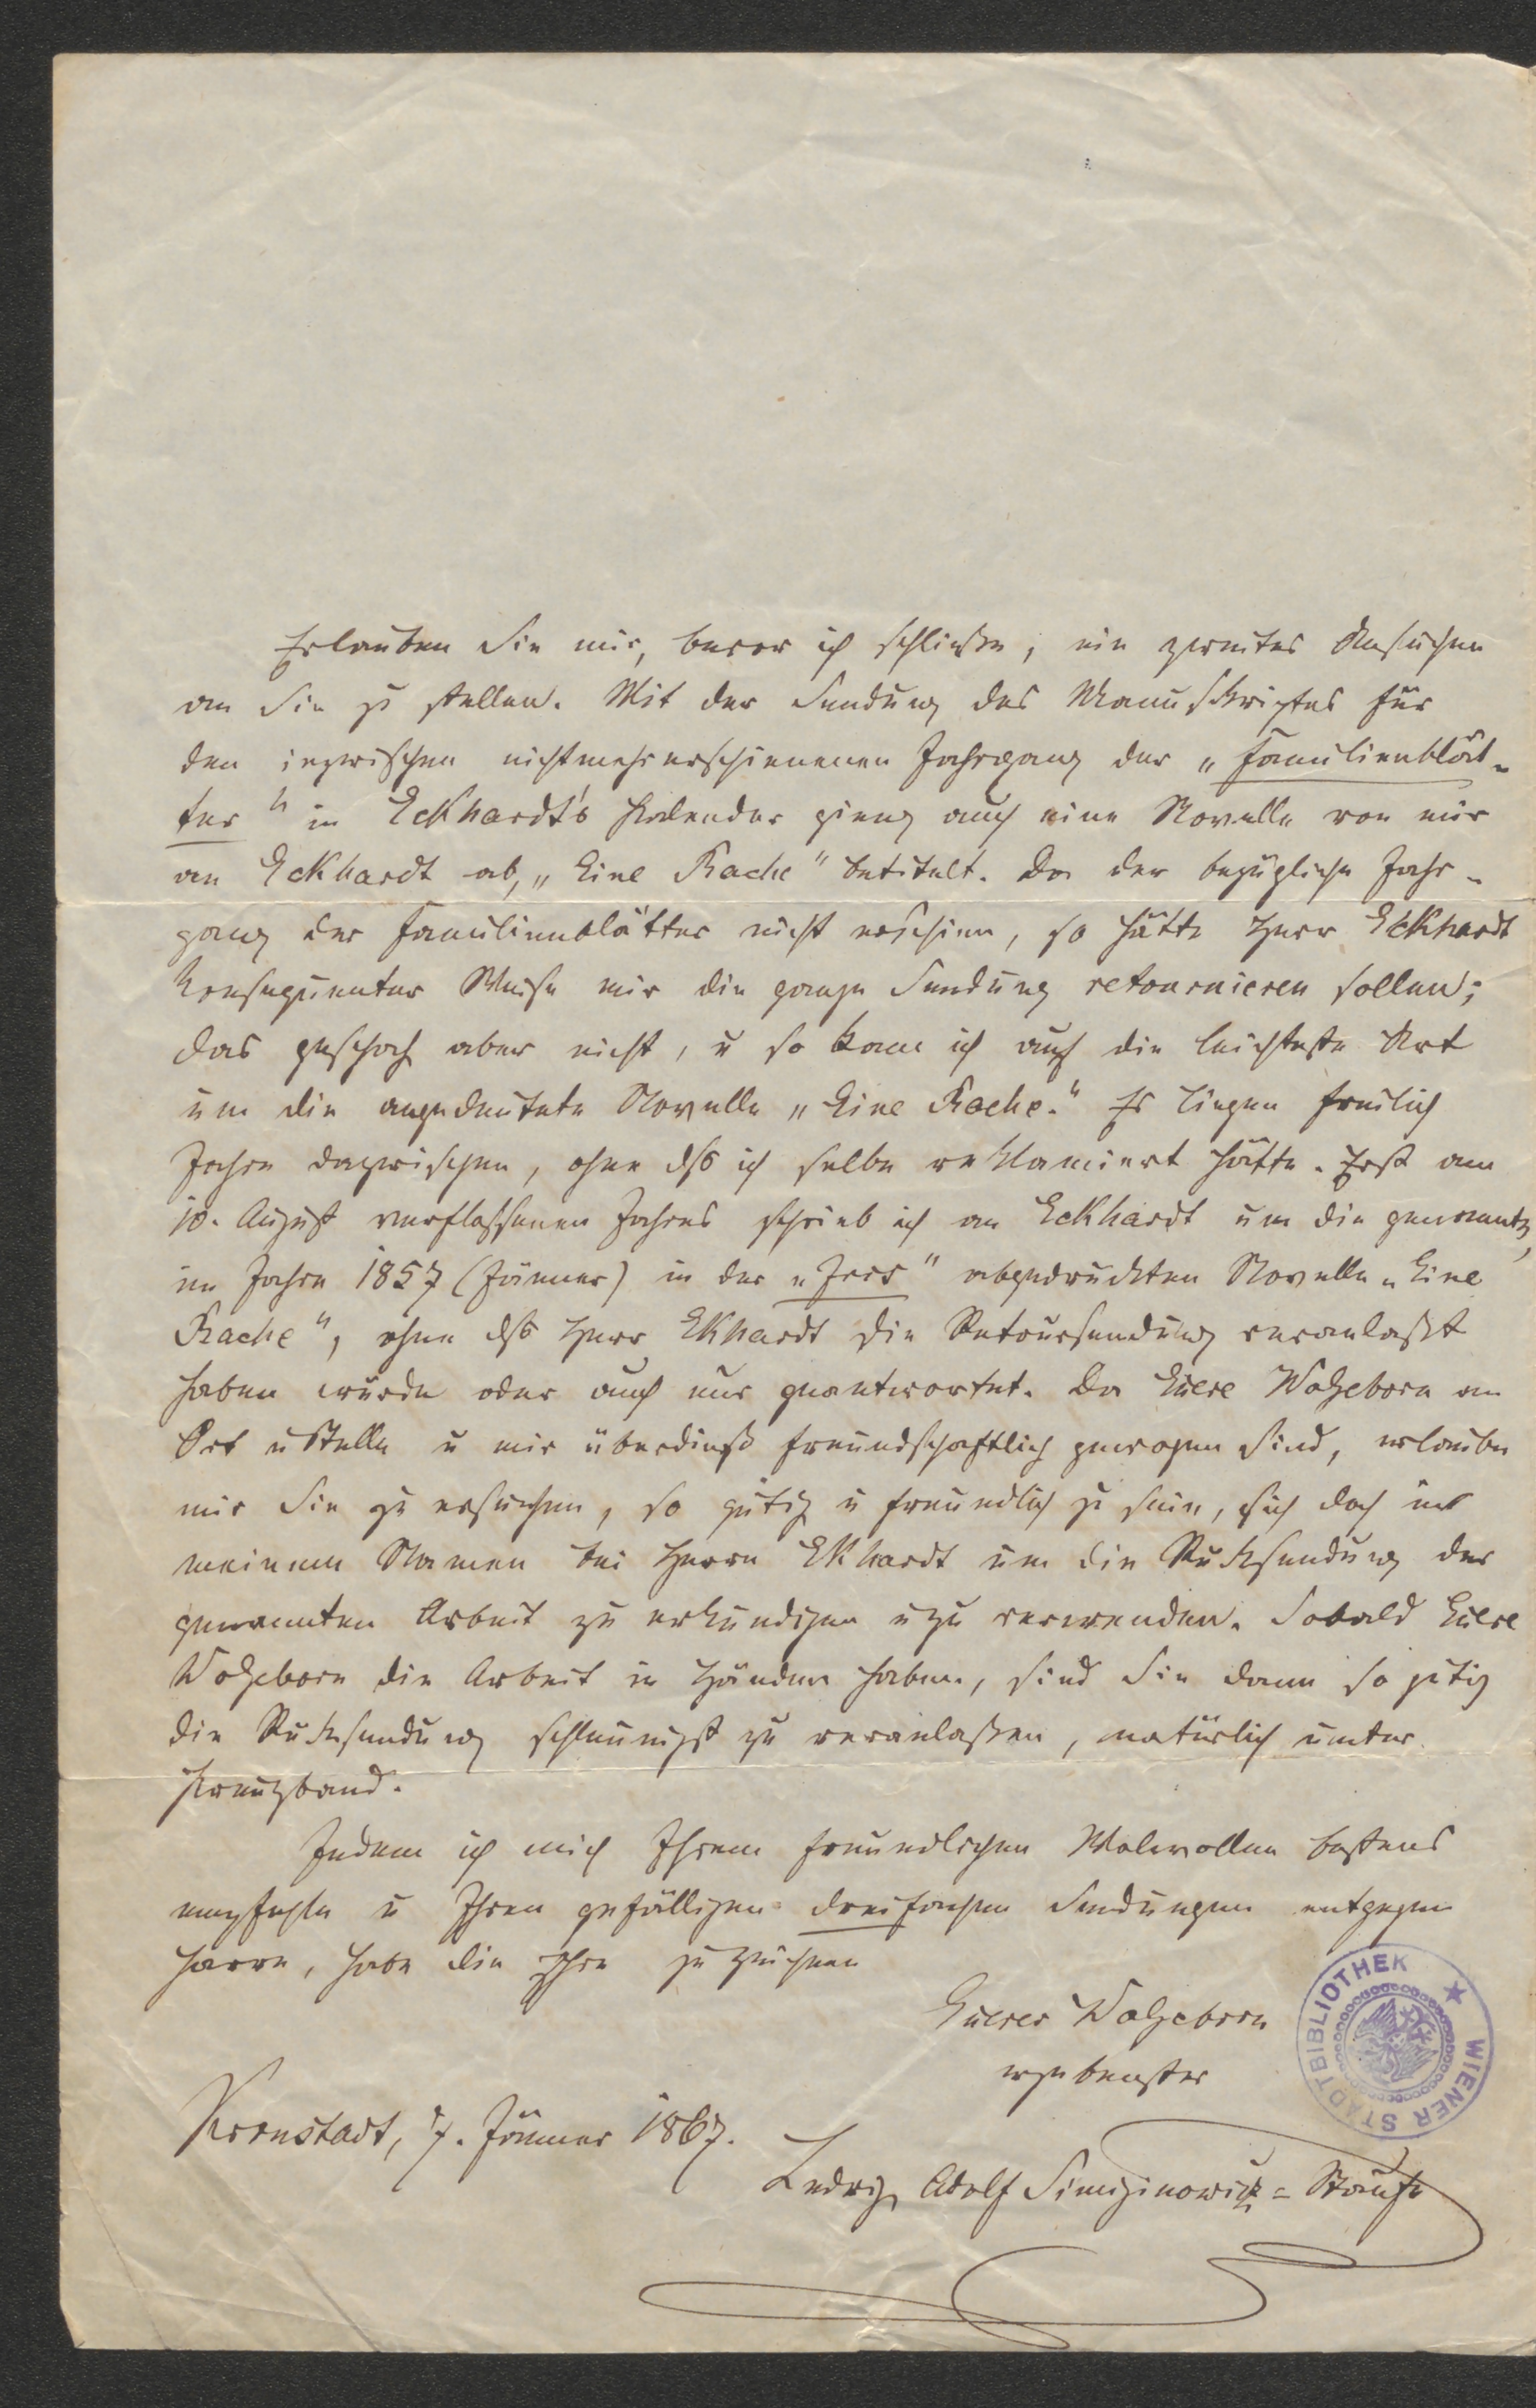 Erlauben Sie mir, bevor ich schließe, ein zweites Ansuchen
an Sie zu stellen. Mit der Sendung des Manuskriptes für
den inzwischen nichtmehr erschienenen Jahrgang der „Familienblät-
ter" in Eckhardt's Kalender gieng auch eine Novelle von mir
an Eckhardt ab, „Eine Rache" betitelt. Da der bezügliche Jahr-
gang der Familienblätter nicht erschien, so hätte Herr Eckhardt
konsequenter Weise mir die ganze Sendung retournieren sollen;
das geschah aber nicht, u so kam ich auf die leichteste Art
um die angedeutete Novelle „Eine Rache." Es liegen freilich
Jahre dazwischen, ohne dß ich selbe reklamiert hätte. Erst am
10. August verflossenen Jahres schrieb ich an Eckhardt um die genannte,
im Jahre 1857 (Jänner) in der „Iris" abgedruckten Novelle „Eine
Rache", ohne dß Herr Ekhardt die Retoursendung veranlaßt
haben würde oder auch nur geantwortet. Da Euere Wolgeborn an
Ort u Stelle u mir überdieß freundschaftlich gewogen sind, erlaube
mir Sie zu ersuchen, so gütig u freundlich zu sein, sich doch in
meinem Namen bei Herrn Ekhardt um die Ruksendung der
genannten Arbeit zu erkundigen u zu verwenden. Sobald Euere
Wolgeborn die Arbeit in Händen haben, sind Sie dann so gütig
die Ruksendung schleunigst zu veranlaßen, natürlich unter
Kreuzband.
Indem ich mich Ihrem freundlichen Wolwollen bestens
empfehle u Ihren gefälligen dreifachen Sendungen entgegen
harre, habe die Ehre zu zeichnen
Euerer Wolgeborn
ergebenster
Kronstadt, 7. Jänner 1867.
Ludwig Adolf Simiginowicz-Staufe
WIENER STADTBIBLIOTHEK